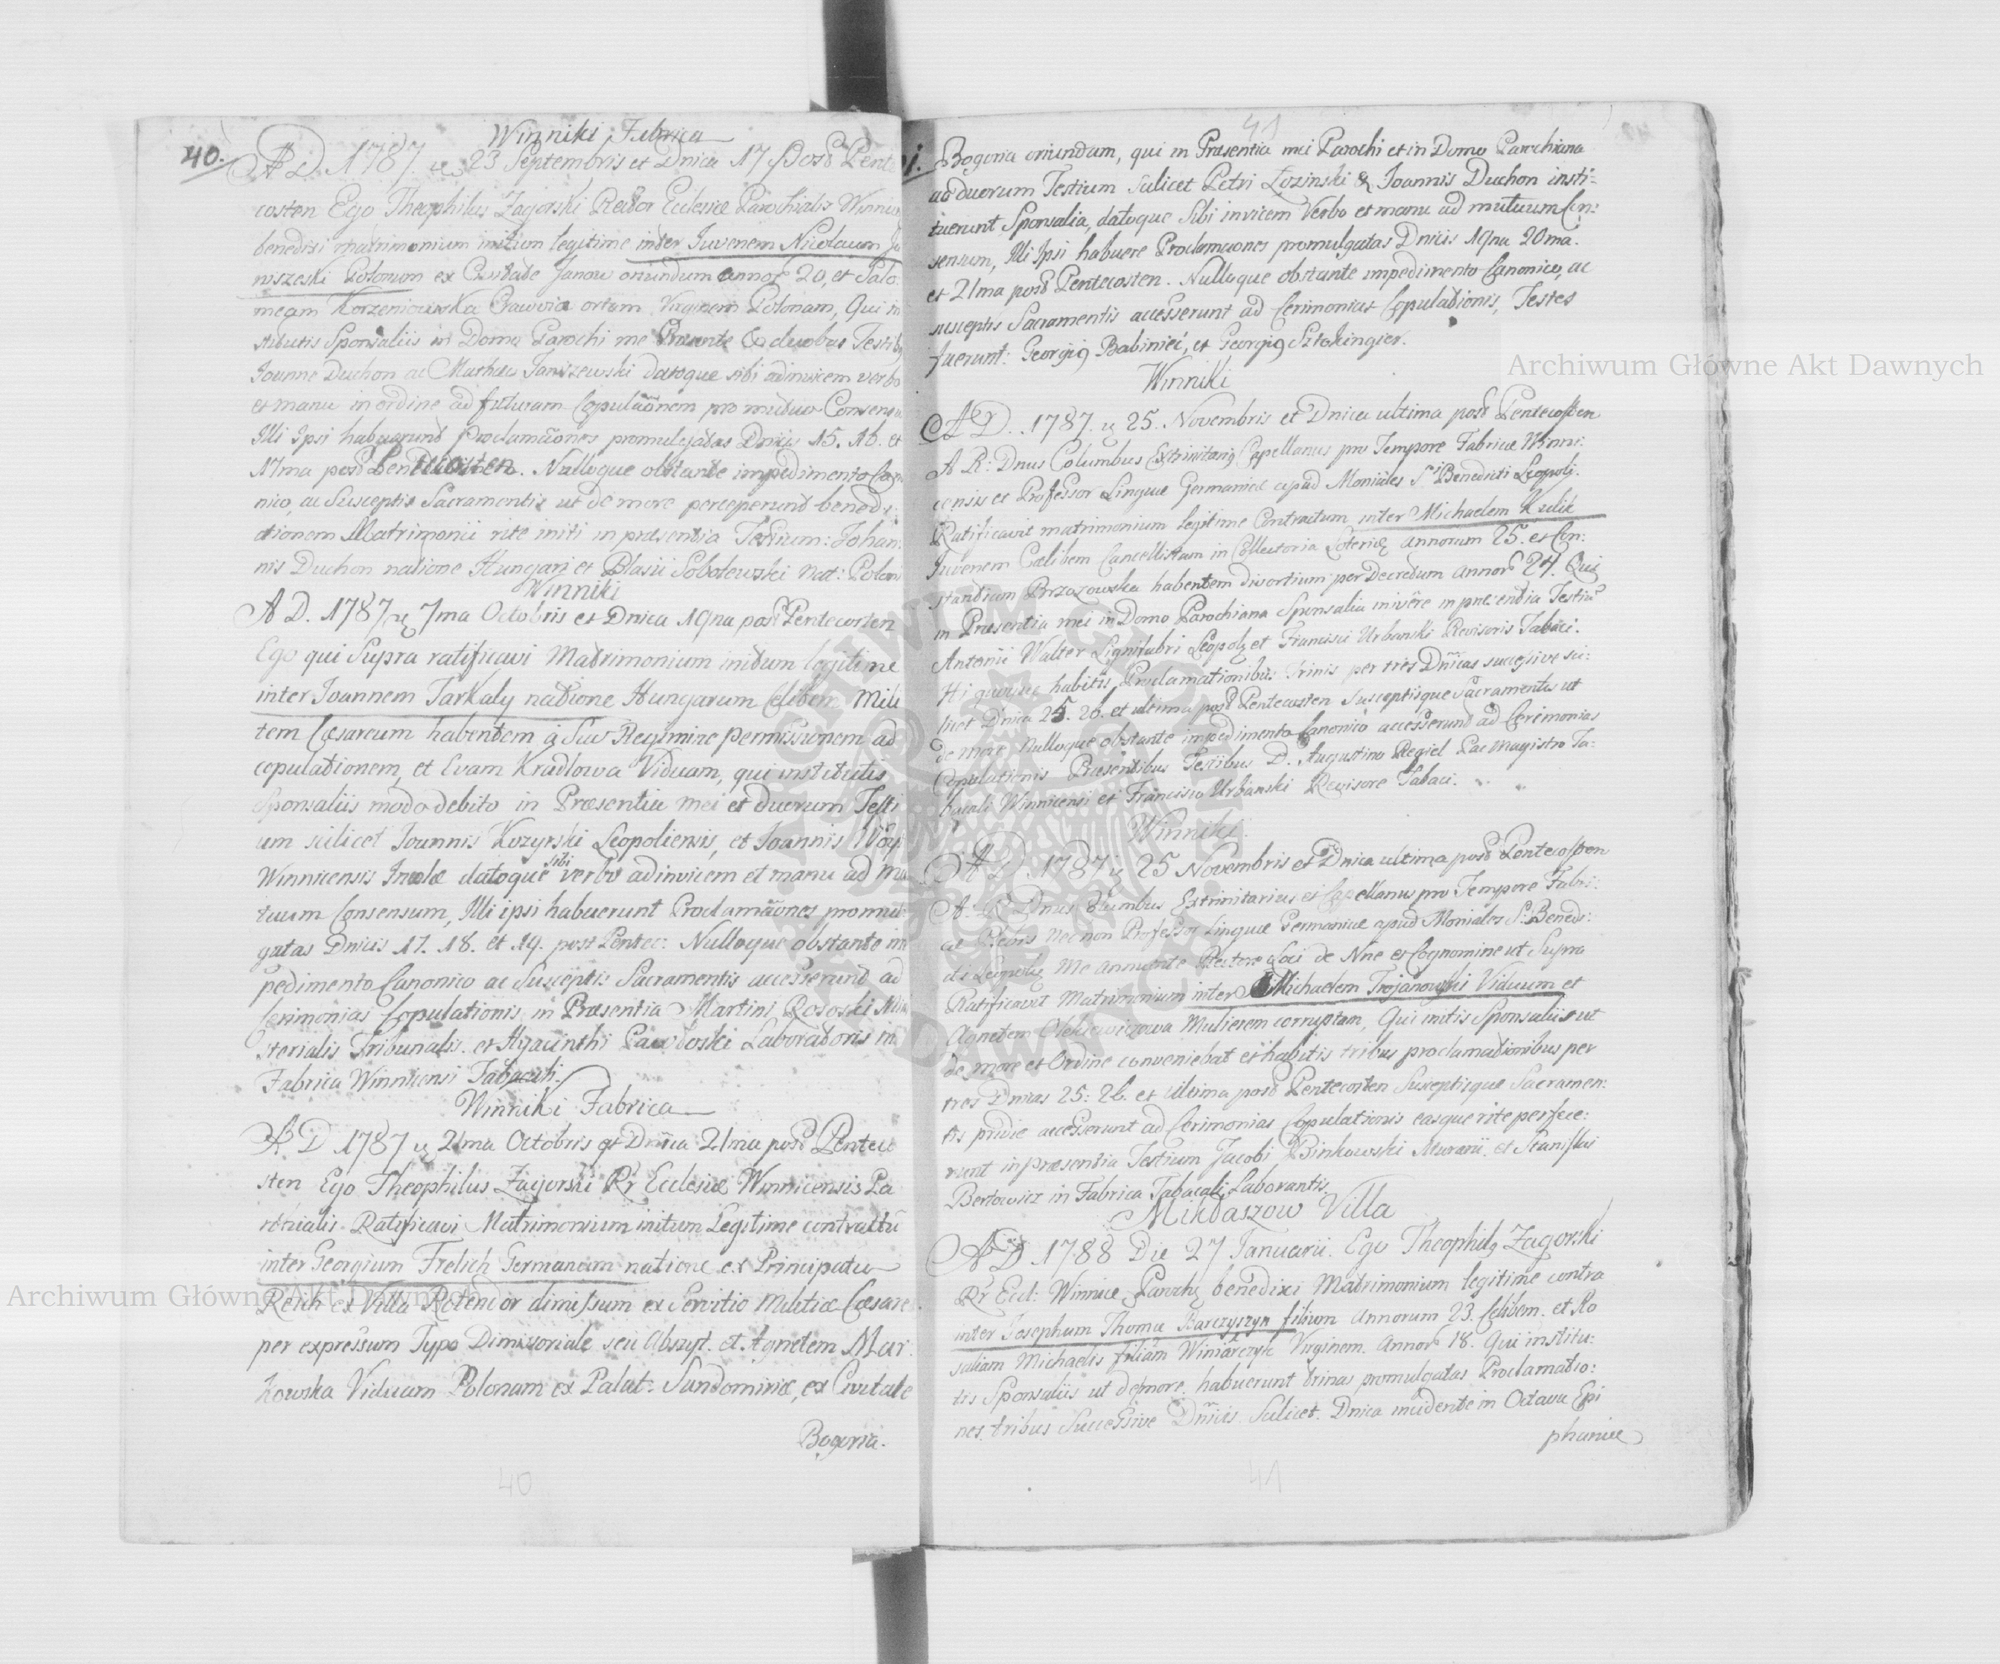 40.
Winniki Fabrica
A D. 1787 23 Septembris et Dnica 17 post Pente
costen Ego Theophilus Zagorski Rector Ecclesiæ Parochialis Winnic
benedixi matrimonium initum legitime inter Juvenem Nicolaum Ja
niszeski Polonum ex Civitate Janow oriundum annor 20, et Salo
meam Korzeniowska Cracoviæ ortam Virginem Polonam, Qui in
stitutis Sponsaliis in Domo Parochi me Præsente & duobus Testib
Joanne Duchon ac Mathæo Janiszewski datoque sibi adinvicem verbo
et manu in ordine ad futuram Copulaõnem pro mutuo Consensu
Illi Ipsi habuerunt Proclamaõnes promulgatas Dnicis 15. 16. et
17ma post Pentecosten. Nulloque obstante impedimento Cano
nico, ac Susceptis Sacramentis ut de more perceperunt benedi
ctionem Matrimonii rite initi in præsentia Testium: Johan
nis Duchon natione Hungari et Blasii Sobolewski Nat: Poloni
Winniki
A D. 1787 7ma Octobris et Dnica 19na post Pentecosten
Ego qui Supra ratificavi Matrimonium initum legitime
inter Joannem Tarkaly natione Hungarum Cælibem Mili
tem Cæsareum habentem a Suo Regimine permissionem ad
copulationem, et Evam Kradlowa Viduam, qui institutis
Sponsaliis modo debito in Præsentia mei et duorum Testi
um scilicet Joannis Kozyrski Leopoliensis, et Joannis Woy
Winnicensis Incolæ datoque sibi verbo adinvicem et manu ad mu
tuum Consensum, Illi ipsi habuerunt Proclamaõnes promul
gatas Dnicis 17. 18. et 19. post Pentec: Nulloque obstante im
pedimento Canonico ac Susceptis Sacramentis accesserunt ad
Cerimonias Copulationis in Præsentia Martini Rososki Mini
sterialis Tribunalis et Hyacinthi Pawloski Laboratoris in
Fabrica Winnicensi Tabacali.
Winniki Fabrica
A D 1787 21ma Octobris et Dnica 21ma post Penteco
sten Ego Theophilus Zagorski Rr Ecclesiæ Winnicensis Pa
rochialis Ratificavi Matrimonium initum Legitime contractũ
inter Georgium Frelich Germanum natione ex Principatu
Reich ex Villa Rotendor dimissum ex Servitio Militiæ Cæsareæ
per expressum Typo Dimissoriale seu Abszyt. et Agnetem Mar
kowska Viduam Polonam ex Palat: Sandomiriæ, ex Civitate
Bogoria.
40
41
Bogoria oriundum, qui in Præsentia mei Parochi et in Domo Parochiana
ac duorum Testium Scilicet Petri Lozinski & Joannis Duchon insti=
tuerunt Sponsalia, datoque Sibi invicem Verbo et manu ad mutuum Con:
sensum, Illi Ipsi habuere Proclamaones promulgatas Dnicis 19na 20ma.
et 21ma post Pentecosten. Nulloque obstante impedimento Canonico, ac
susceptis Sacramentis accesserunt ad Cerimonias Copulationis, Testes
fuerunt: Georgi9 Babiniec, et Georgi9 Sztokingier.
Winniki
A D. 1787. 25. Novembris et Dnica ultima post Pentecosten
A R: Dnus Columbus Extrinitari9 Capellanus pro Tempore Fabricæ Winni:
censis et Professor Linguæ Germanicæ apud Moniales Sti Benedicti Leopoli.
Ratificavit matrimonium legitime Contractum inter Michaelem Kulik
Juvenem Cælibem Cancellistam in Collectoria Loteriæ annorum 25. et Con:
stantiam Brzozowska habentem divortium per Decretum annor 24. Qui
in Præsentia mei in Domo Parochiana Sponsalia inivêre in præsentia Testiũ
Antonii Walter Lignifabri Leopoli et Francisci Urbanski Revisoris Tabaci.
Hi quoque habitis Proclamationibus Trinis per tres Dnicas successive sci:
licet Dnica 25. 26. et ultima post Pentecosten Susceptisque Sacramentis ut
de more Nulloque obstante impedimento Canonico accesserunt ad Cerimonias
Copulationis Præsentibus Testibus D. Augustino Regiel Pac Magistro Ta:
bacali Winnicensi et Francisco Urbanski Revisore Tabaci.
Winniki
A D 1787 25 Novembris et Dnica ultima post Pentecosten
A: R Dnus Columbus Extrinitarius et Capellanus pro Tempore Fabri:
cæ Plebis necnon Professor Linguæ Germanicæ apud Moniales S: Bened:
di Leopoli me annuente Rectore Loci de Nne et Cognomine ut Supra
Ratificavit Matrimonium inter Michaelem Trojanowski Viduum et
Agnetem Olekiewiczowa Mulierem corruptam, Qui initis Sponsaliis ut
de more et Ordine conveniebat et habitis tribus proclamationibus per
tres Dnicas 25: 26. et ultima post Pentecosten Susceptisque Sacramen:
tis pridie accesserunt ad Cerimonias Copulationis easque rite perfece:
runt in præsentia Testium Jacobi Binkowski Murarii, et Stanislai
Bertowicz in Fabrica Tabacali Laborantis.
Mikłaszow Villa
A D 1788 Die 27 Januarii. Ego Theophil9 Zagorski
Rr Eccl: Winnicæ Paroch9 benedixi Matrimonium legitime contra
inter Josephum Thomæ Harczyszyn filium annorum 23. Cælibem. et Ro
saliam Michaelis filiam Winiarczyk Virginem Annor 18. Qui institu:
tis Sponsaliis ut de more habuerunt trinas promulgatas Proclamatio:
nes tribus Successive Dnicis Scilicet. Dnica incidente in Octava Epi
phaniæ
41
Archiwum Główne Akt Dawnych
Archiwum Główne Akt Dawnych
ARCHIWUM GŁÓWNE AKT DAWNYCH